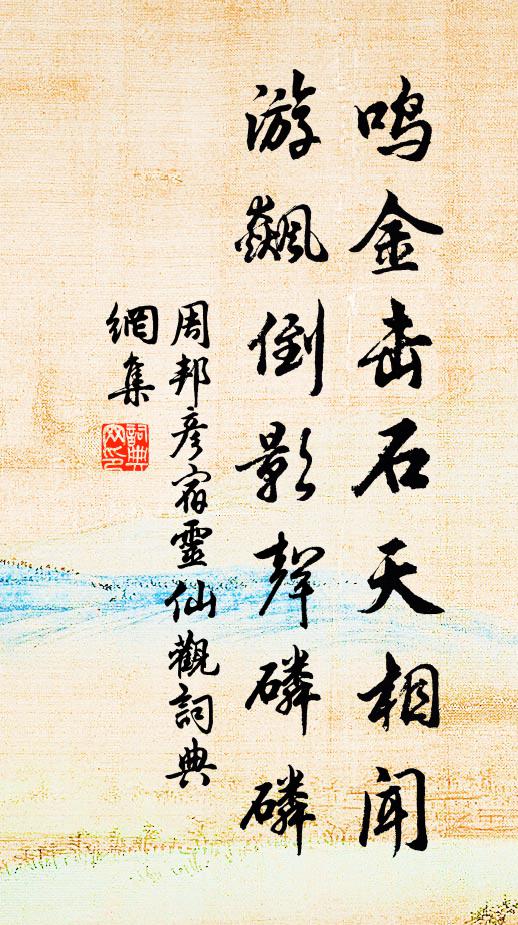 鸣金击石天相闻
游飙倒影声磷磷
周邦彦宿灵仙观词典
网集
词典